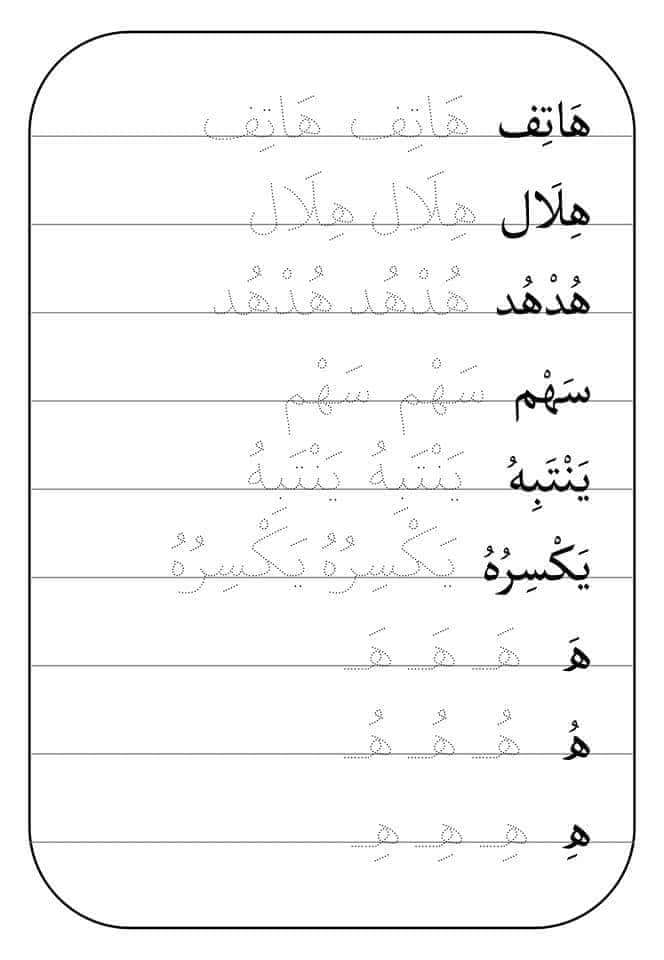 هَاتِف هَاتِف هَاتِف
هِلَال هِلَال هِلَال
هُدْهُد هُدْهُد هُدْهُد
سَهْم سَهْم سَهْم
يَنْتَبِهُ يَنْتَبِهُ يَنْتَبِهُ
يَكْسِرُهُ يَكْسِرُهُ يَكْسِرُهُ
هَ هَـ هَـ هَـ
هُ هُـ هُـ هُـ
هِ هِـ هِـ هِـ